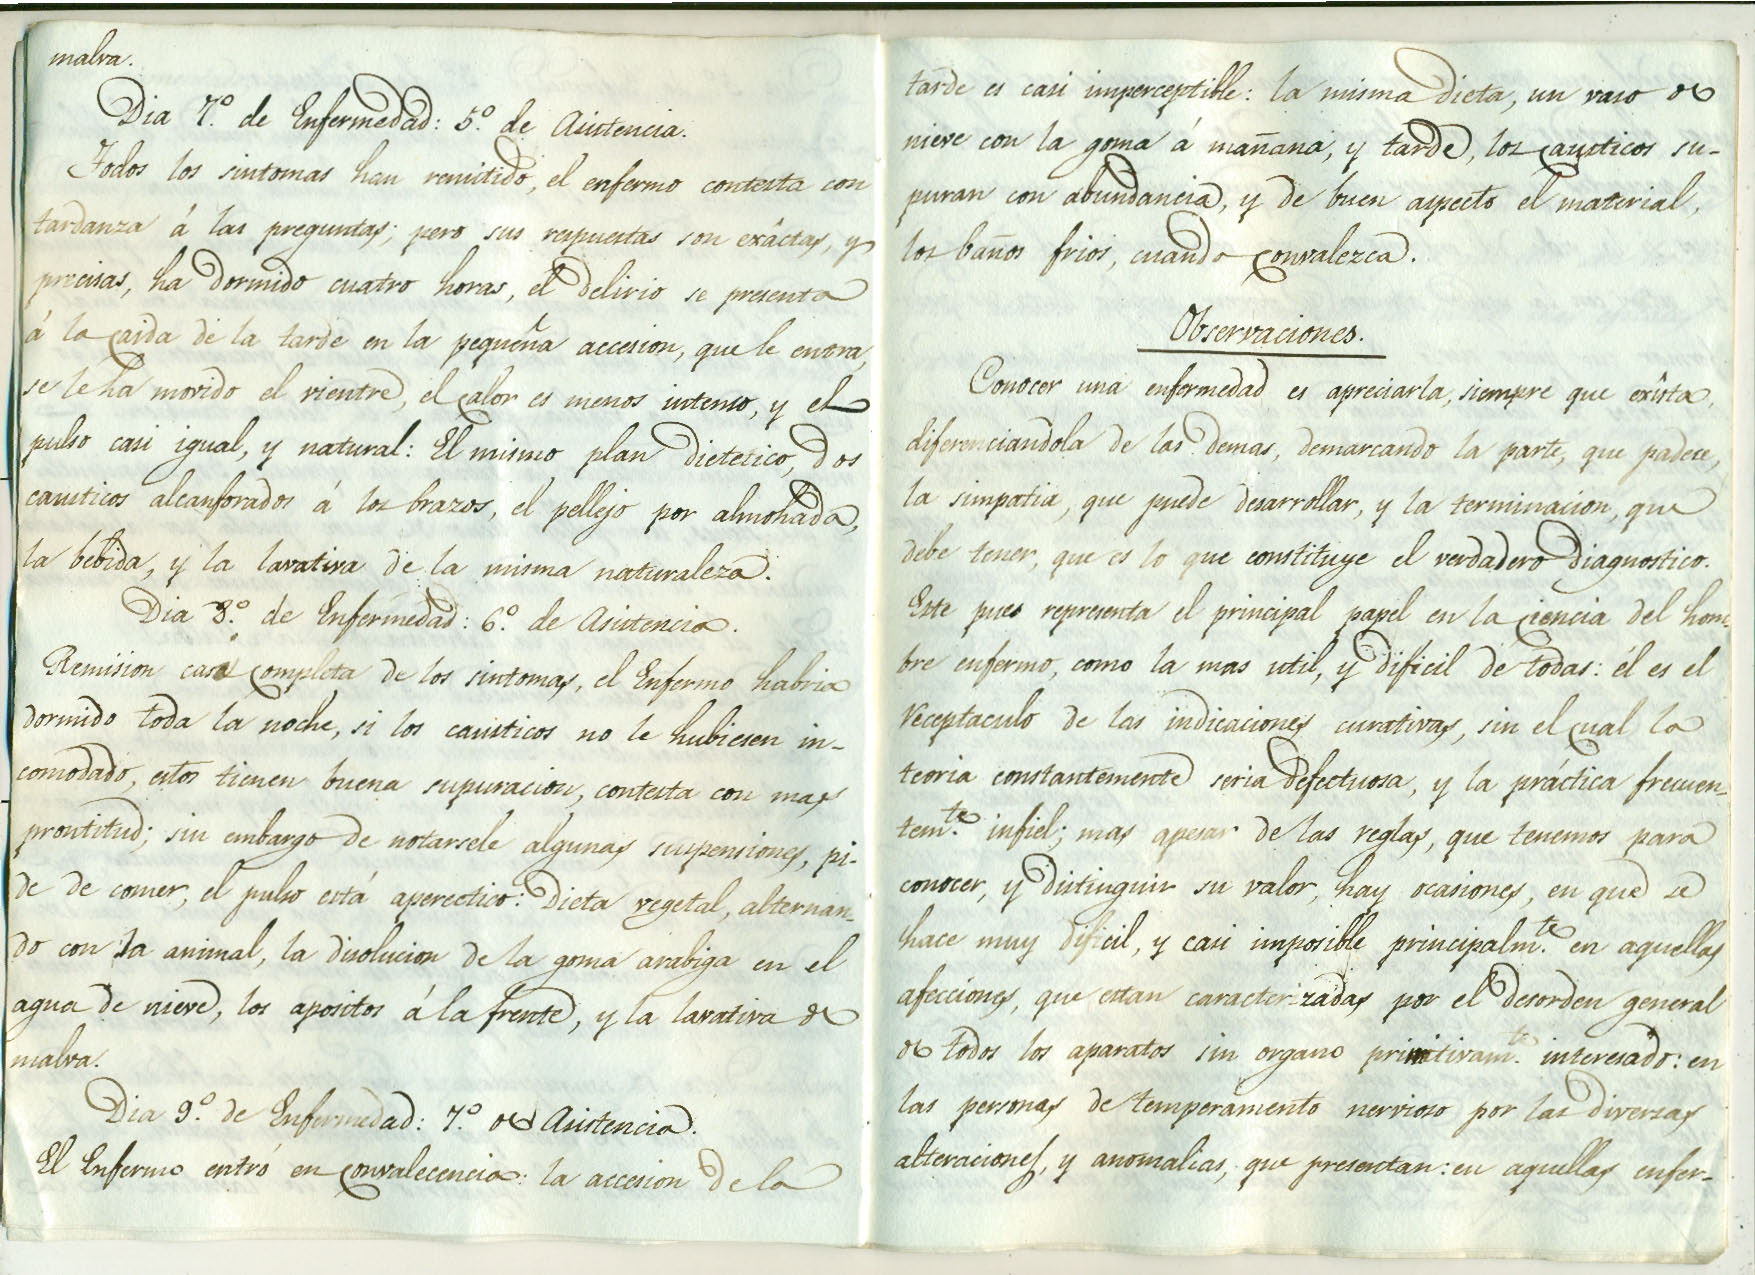 malva.
Dia 7.º de Enfermedad: 5.º de Asistencia.
Todos los sintomas han remitido, el enfermo contesta con
tardanza á las preguntas; pero sus respuestas son exâctas, y
precisas, ha dormido cuatro horas, el delirio se presenta
á la caida de la tarde en la pequeña accesion, que le entra,
se le ha movido el vientre, el calor es menos intenso, y el
pulso casi igual, y natural: El mismo plan dietetico, dos
causticos alcanforados á los brazos, el pellejo por almohada,
la bebida, y la lavativa de la misma naturaleza.
Dia 8.º de Enfermedad: 6.º de Asistencia.
Remision casi completa de los sintomas, el Enfermo habria
dormido toda la noche, si los causticos no le hubiesen in-
comodado, estos tienen buena supuracion, contesta con mas
prontitud; sin embargo de notarsele algunas suspensiones, pi-
de de comer, el pulso está aperectico: Dieta vegetal, alternan-
do con la animal, la disolucion de la goma arabiga en el
agua de nieve, los apositos á la frente, y la lavativa de
malva.
Dia 9.º de Enfermedad: 7.º de Asistencia.
El Enfermo entró en convalecencia: la accesion de la
tarde es casi imperceptible: la misma dieta, un vaso de
nieve con la goma á mañana, y tarde, los causticos su-
puran con abundancia, y de buen aspecto el material,
los baños frios, cuando convalezca.
Observaciones.
Conocer una enfermedad es apreciarla, siempre que exîsta,
diferenciandola de las demas, demarcando la parte, que padece,
la simpatia, que puede desarrollar, y la terminacion, que
debe tener, que es lo que constituye el verdadero diagnostico.
Este pues representa el principal papel en la ciencia del hom-
bre enfermo, como la mas util, y dificil de todas: él es el
receptaculo de las indicaciones curativas, sin el cual la
teoria constantemente seria defectuosa, y la práctica frecuen-
tem.te infiel; mas apesar de las reglas, que tenemos para
conocer, y distinguir su valor, hay ocasiones, en que se
hace muy dificil, y casi imposible principalm.te en aquellas
afecciones, que estan caracterizadas por el desorden general
de todos los aparatos sin organo primitivam.te interesado: en
las personas de temperamento nervioso por las diversas
alteraciones, y anomalias, que presentan: en aquellas enfer-